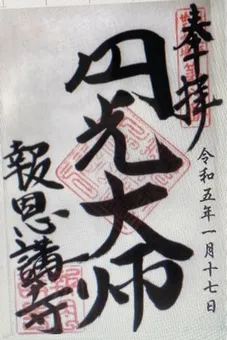 奉拝
令和五年一月十七日
円光大师
報恩講寺